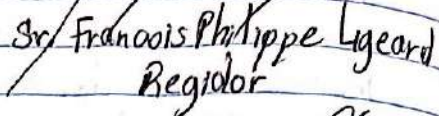 Sr/ Francois Philippe Ligeard
Regidor